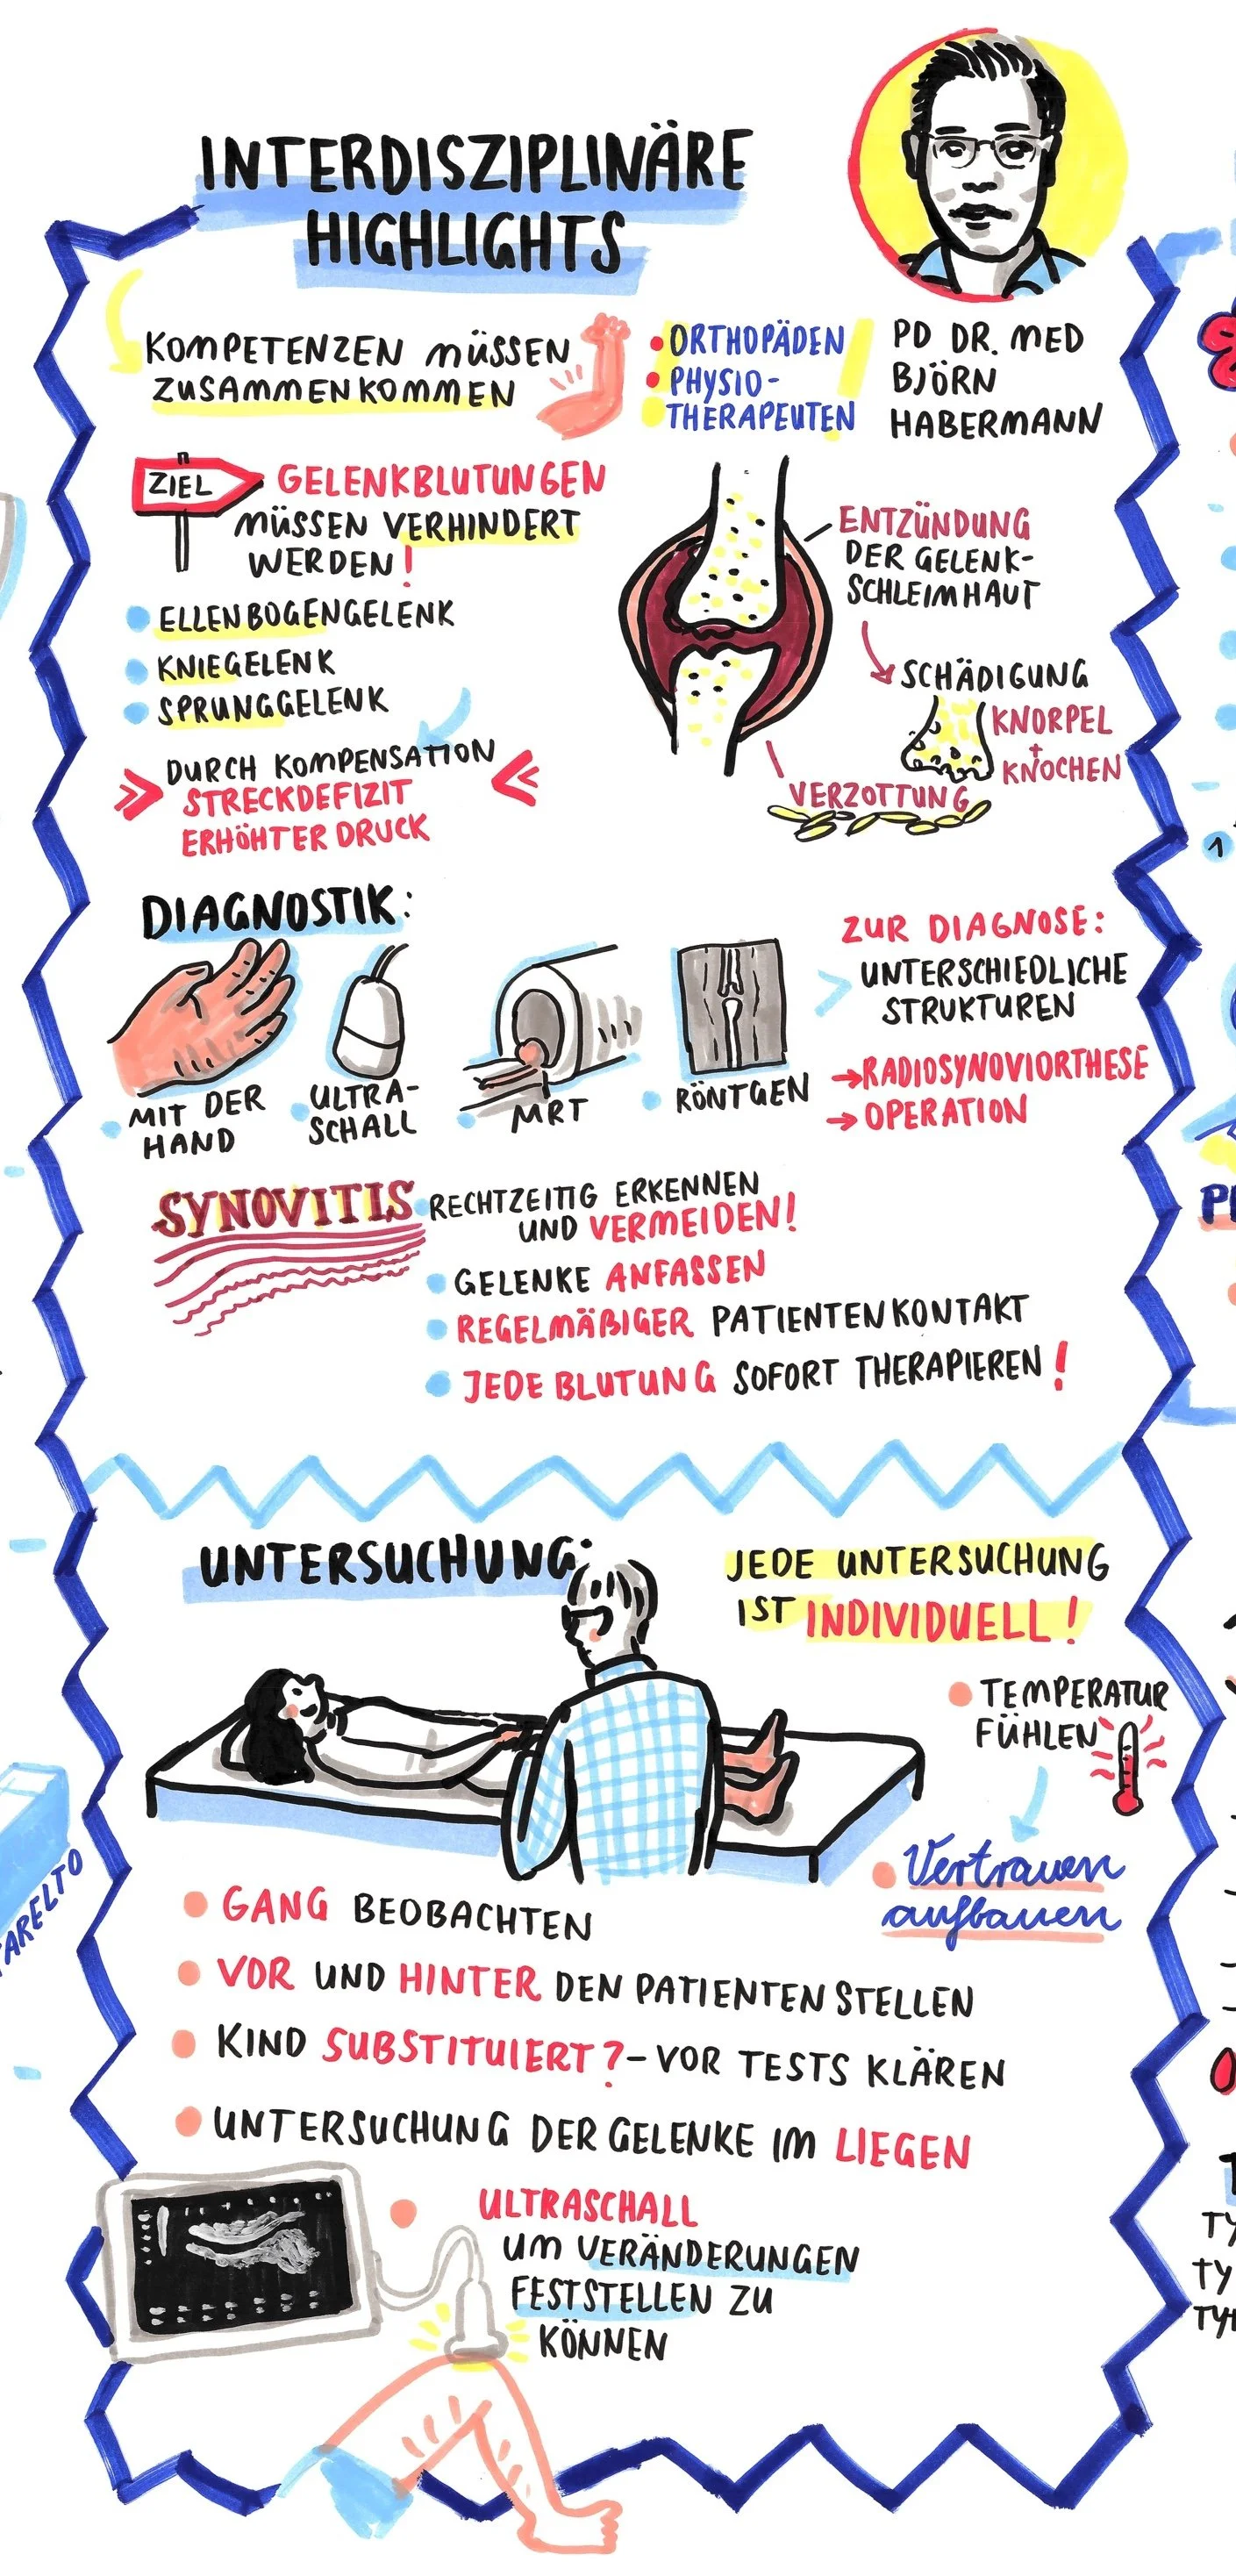 INTERDISZIPLINÄRE
HIGHLIGHTS
KOMPETENZEN MÜSSEN
ZUSAMMENKOMMEN
• ORTHOPÄDEN
• PHYSIO-
THERAPEUTEN
PD DR. MED
BJÖRN
HABERMANN
ZIEL
GELENKBLUTUNGEN
MÜSSEN VERHINDERT
WERDEN!
ELLENBOGENGELENK
KNIEGELENK
SPRUNGGELENK
DURCH KOMPENSATION
STRECKDEFIZIT
ERHÖHTER DRUCK
ENTZÜNDUNG
DER GELENK-
SCHLEIMHAUT
SCHÄDIGUNG
KNORPEL
+
KNOCHEN
VERZOTTUNG
DIAGNOSTIK:
MIT DER
HAND
ULTRA-
SCHALL
MRT
RÖNTGEN
ZUR DIAGNOSE:
UNTERSCHIEDLICHE
STRUKTUREN
→ RADIOSYNOVIORTHESE
→ OPERATION
SYNOVITIS
RECHTZEITIG ERKENNEN
UND VERMEIDEN!
GELENKE ANFASSEN
REGELMÄßIGER PATIENTENKONTAKT
JEDE BLUTUNG SOFORT THERAPIEREN!
UNTERSUCHUNG:
JEDE UNTERSUCHUNG
IST INDIVIDUELL!
TEMPERATUR
FÜHLEN
Vertrauen
aufbauen
GANG BEOBACHTEN
VOR UND HINTER DEN PATIENTEN STELLEN
KIND SUBSTITUIERT? - VOR TESTS KLÄREN
UNTERSUCHUNG DER GELENKE IM LIEGEN
ULTRASCHALL
UM VERÄNDERUNGEN
FESTSTELLEN ZU
KÖNNEN
ARELTO
1
TY
TY